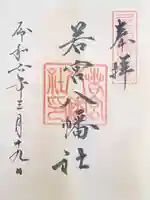 奉拝
若宮八幡社
令和六年三月十九日